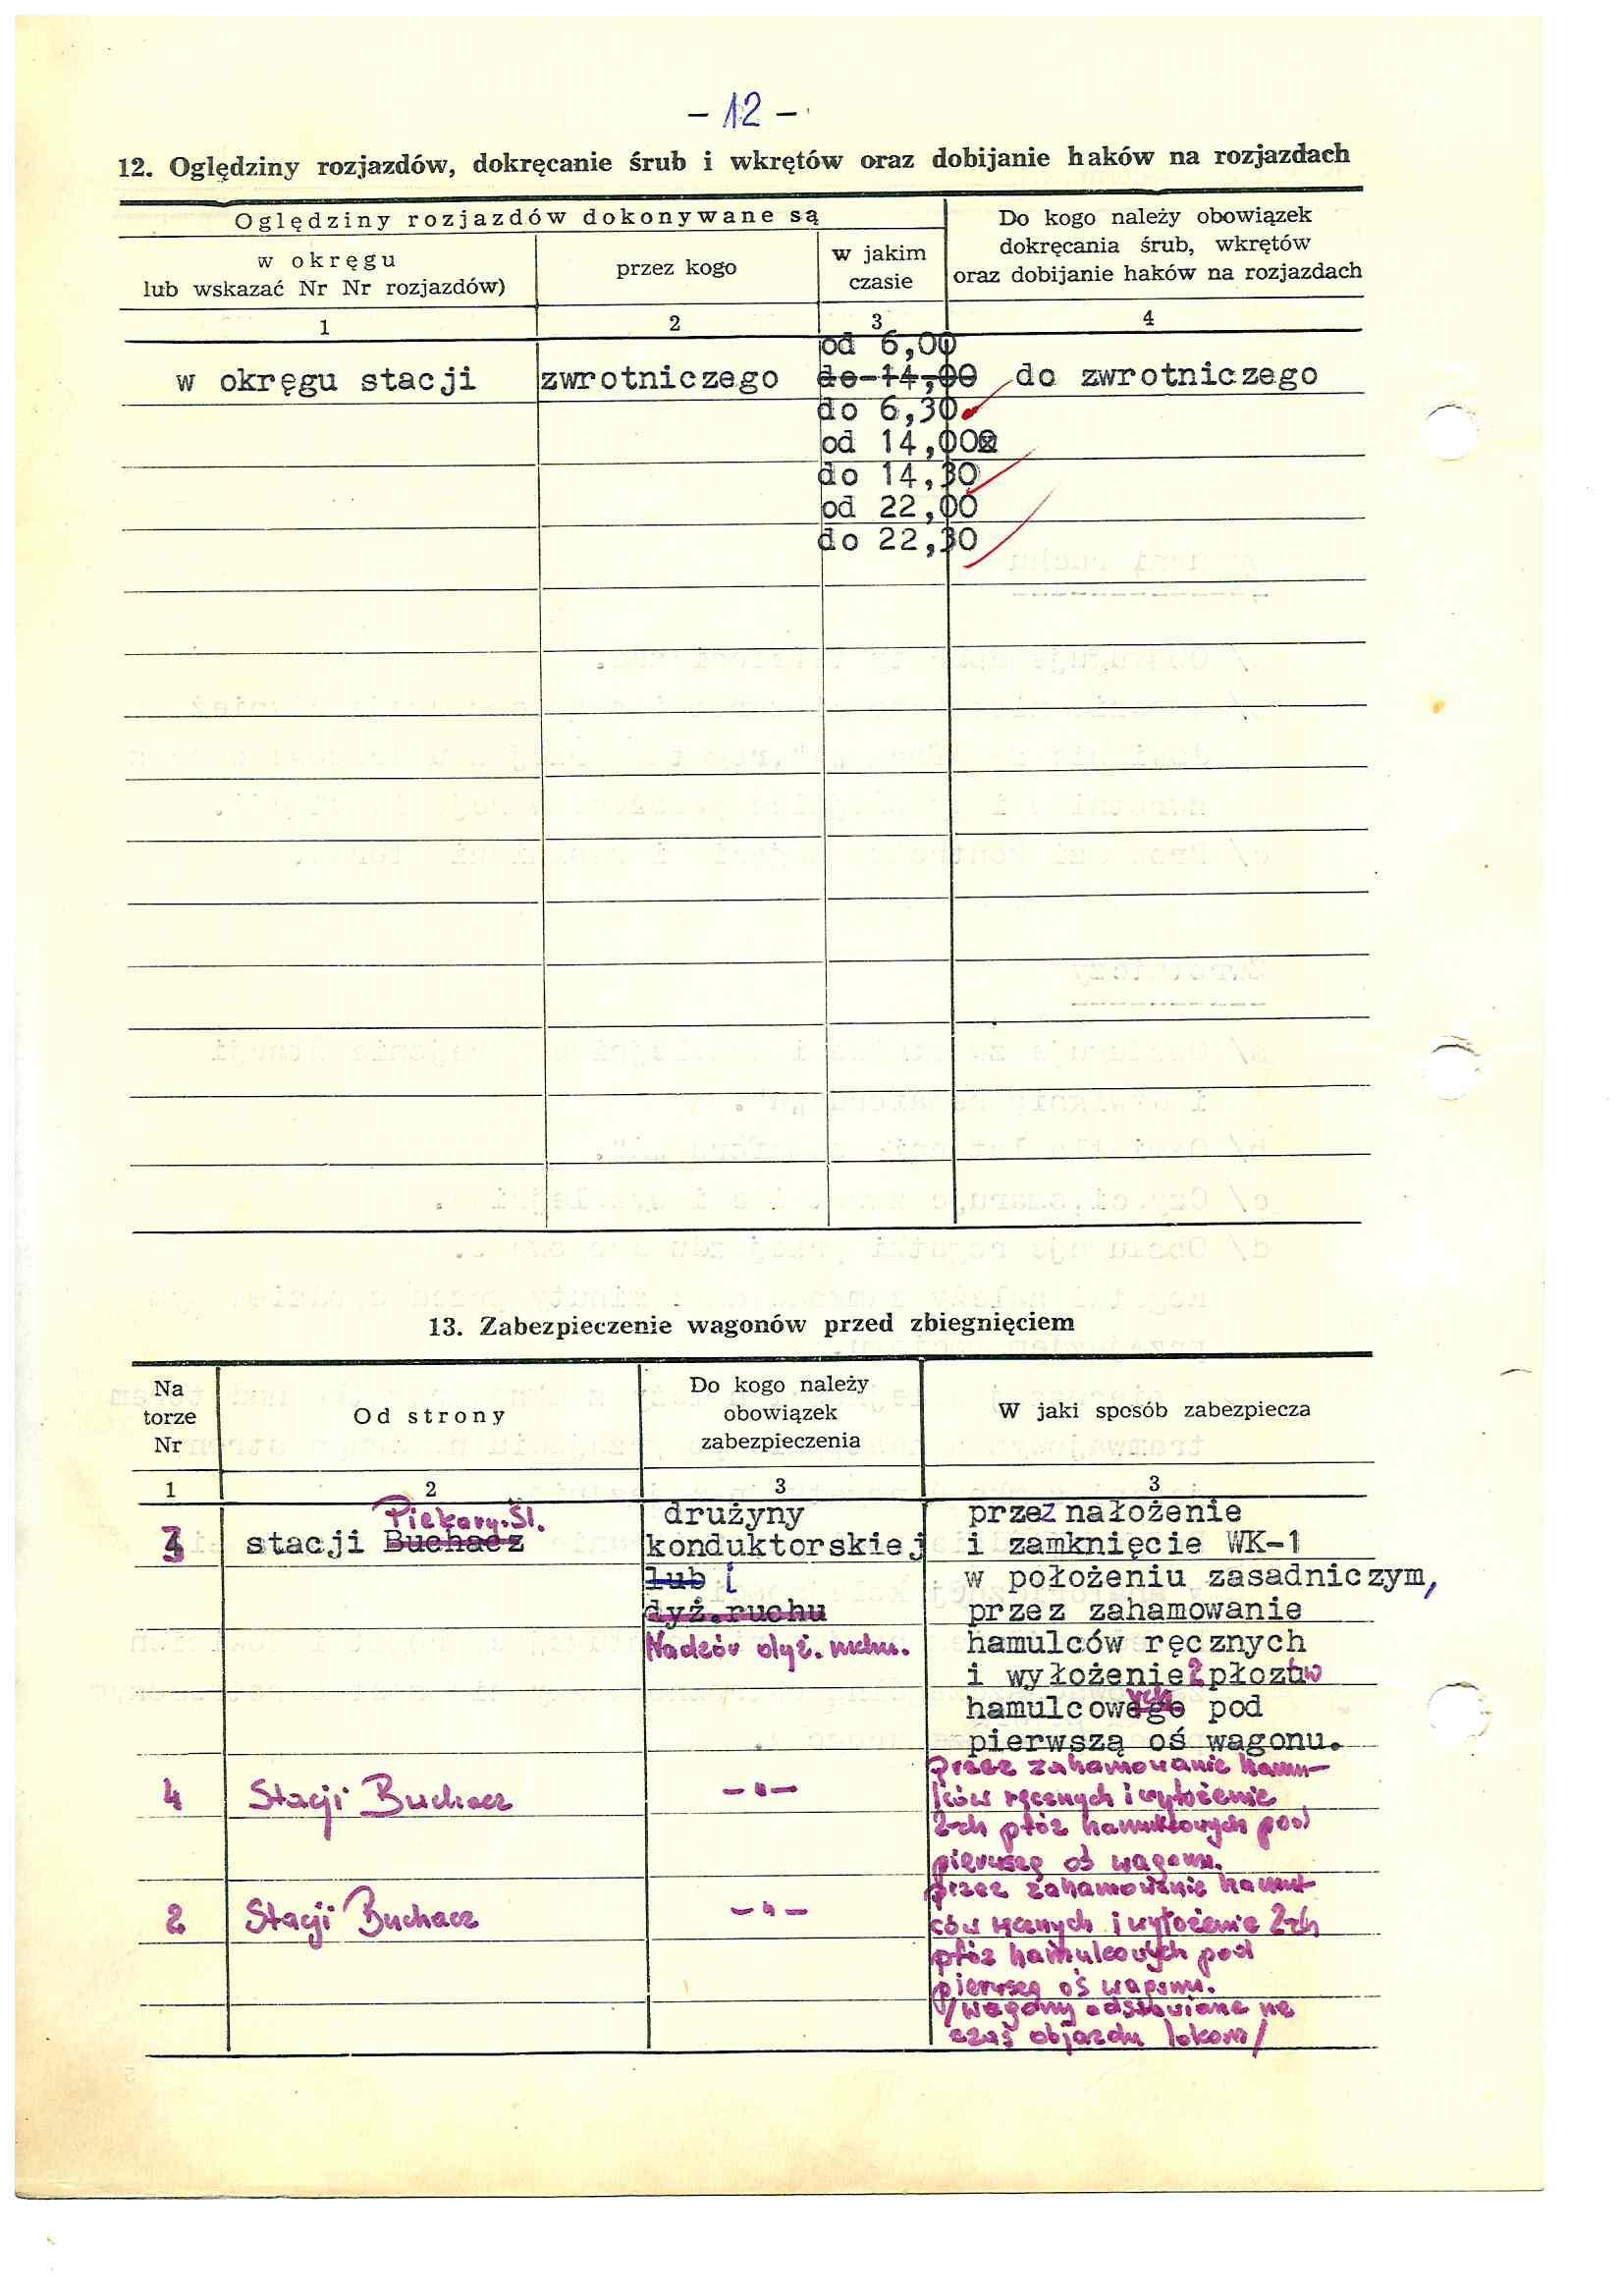 - 12 -
12. Oględziny rozjazdów, dokręcanie śrub i wkrętów oraz dobijanie haków na rozjazdach
Oględziny rozjazdów dokonywane są
w okręgu
lub wskazać Nr Nr rozjazdów)
przez kogo
w jakim
czasie
Do kogo należy obowiązek
dokręcania śrub, wkrętów
oraz dobijanie haków na rozjazdach
1 2 3 4
w okręgu stacji
zwrotniczego
od 6,00
do 14,00
do 6,30
od 14,00
do 14,30
od 22,00
do 22,30
do zwrotniczego
13. Zabezpieczenie wagonów przed zbiegnięciem
Na
torze
Nr
Od strony
Do kogo należy
obowiązek
zabezpieczenia
W jaki sposób zabezpiecza
1 2 3 3
3
Piekary.Śl.
stacji Buchacz
drużyny
konduktorskiej
lub i
dyż.ruchu
Nadzór dyż. ruchu.
przez nałożenie
i zamknięcie WK-1
w położeniu zasadniczym,
przez zahamowanie
hamulców ręcznych
i wyłożenie 2 płozów
hamulcowego ych pod
pierwszą oś wagonu.
4
Stacji Buchacz
-"-
przez zahamowanie hamu-
lców ręcznych i wyłożenie
2-ch płóz hamulcowych pod
pierwszą oś wagonu.
2
Stacji Buchacz
-"-
przez zahamowanie hamul-
ców ręcznych i wyłożenie 2-ch
płóz hamulcowych pod
pierwszą oś wagonu.
/wagony odstawiane na
czas objazdu lokom/